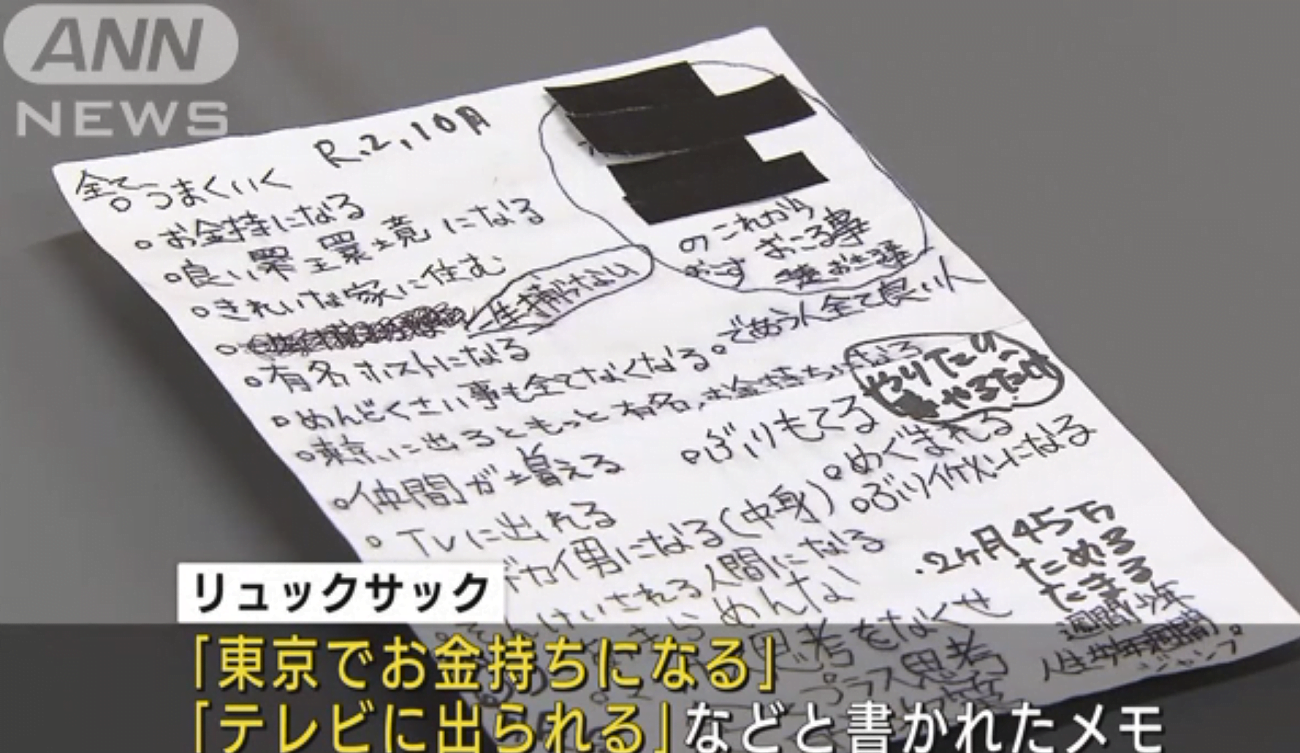 ANN
NEWS
R.2,10月
全てうまくいく
お金持になる
良い環境になる
きれいな家に住む
捕らない
有名ホストになる
めんどくさい事も全てなくなる
東京に出るともっと有名、お金持ちになる
仲間が増える
TVに出れる
デカイ男になる(中身)
そんけいされる人間になる
あきらめんな
思考をなくせ
プラス思考
のこれから
おこる事
おこす
であう人全て良い人
やりたい
やるだけ
ぶりもてる
めぐまれる
ぶりイケメンになる
.2ヶ月45万
ためる
たまる
週間少年
人生
ジャンプ。
リュックサック
「東京でお金持ちになる」
「テレビに出られる」などと書かれたメモ